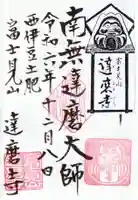 南無達磨大師
令和六年十二月八日
西伊豆土肥
富士見山
達磨寺
富士見山
達磨寺